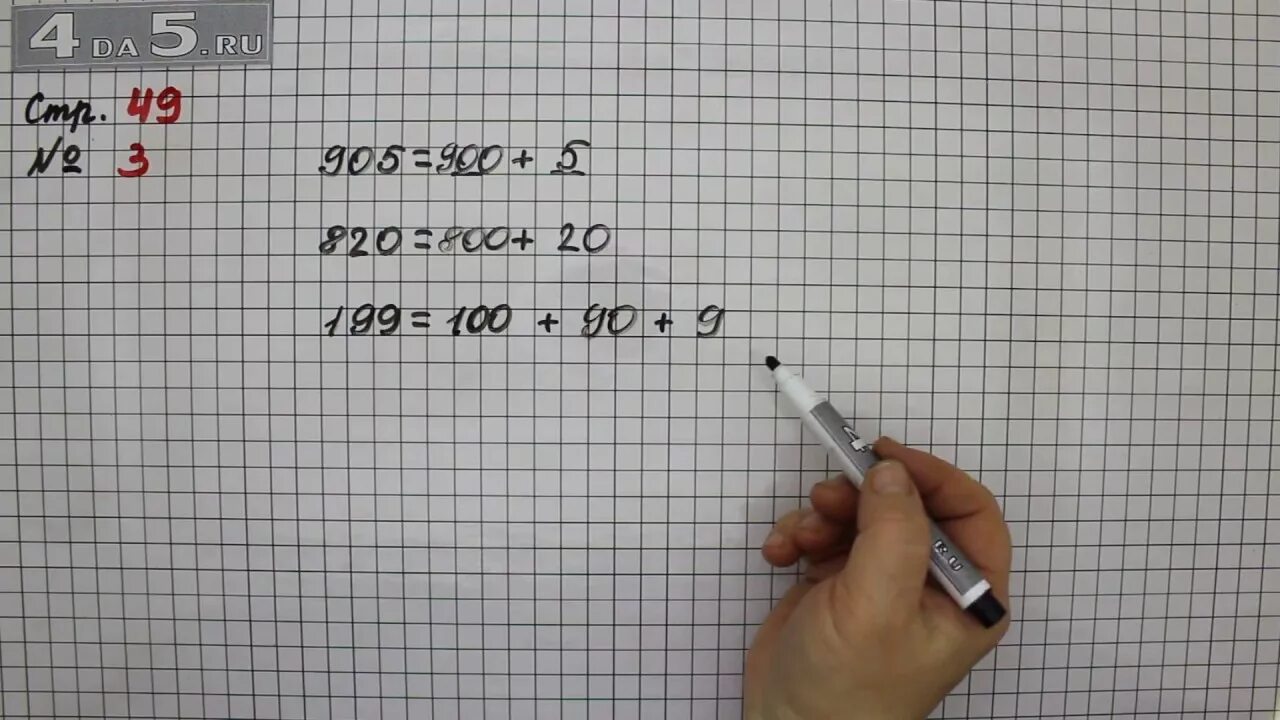 4DA5.RU
Стр. 49
№ 3
905=900+ 5
820=800+ 20
199= 100 + 90 + 9
4
RU